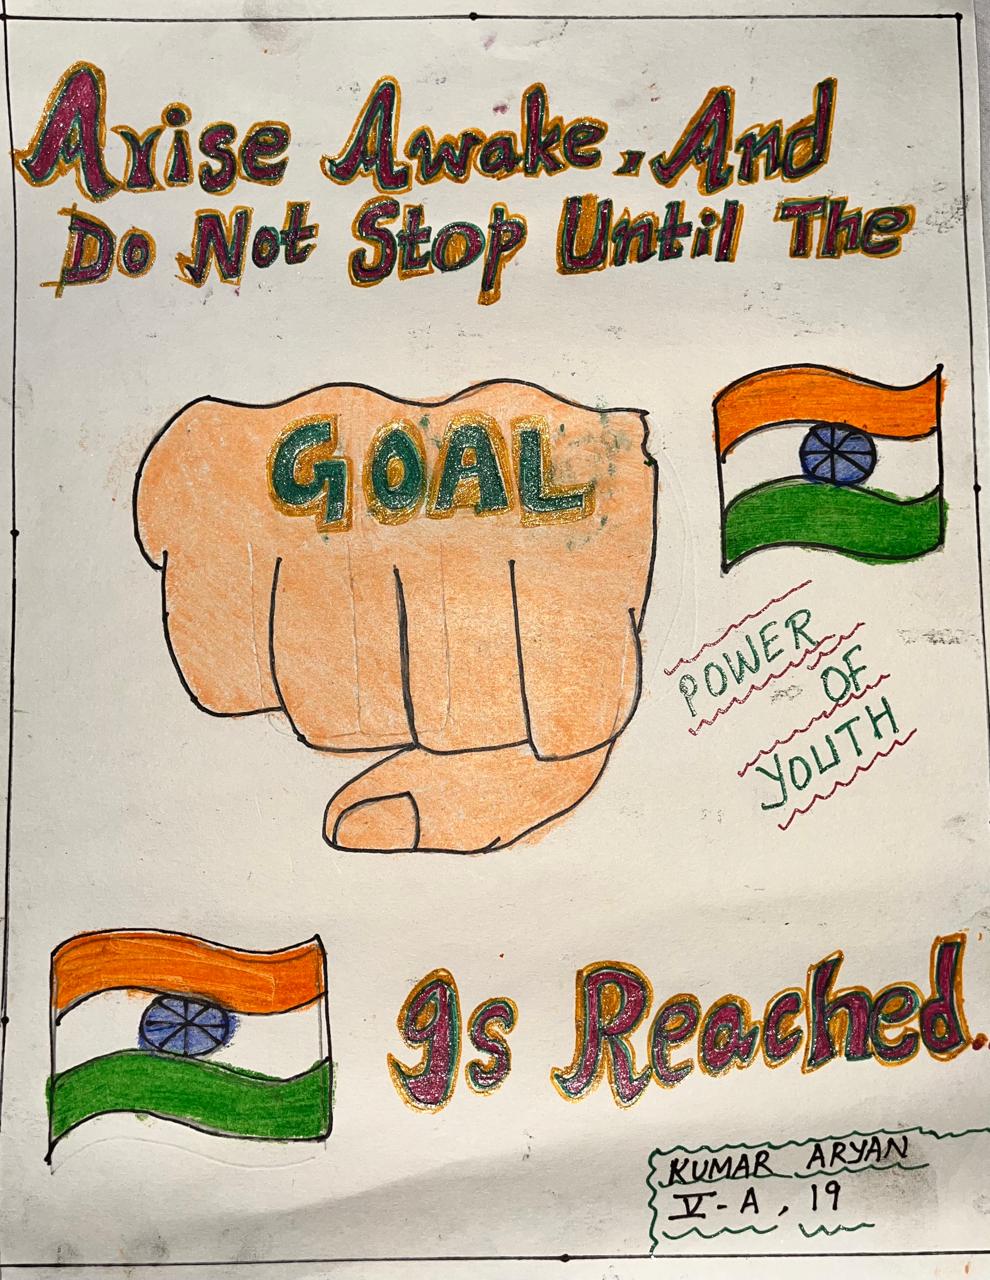 Arise Awake, And
Do Not Stop Until The
GOAL
POWER
OF
YOUTH
Is Reached.
KUMAR ARYAN
V-A, 19